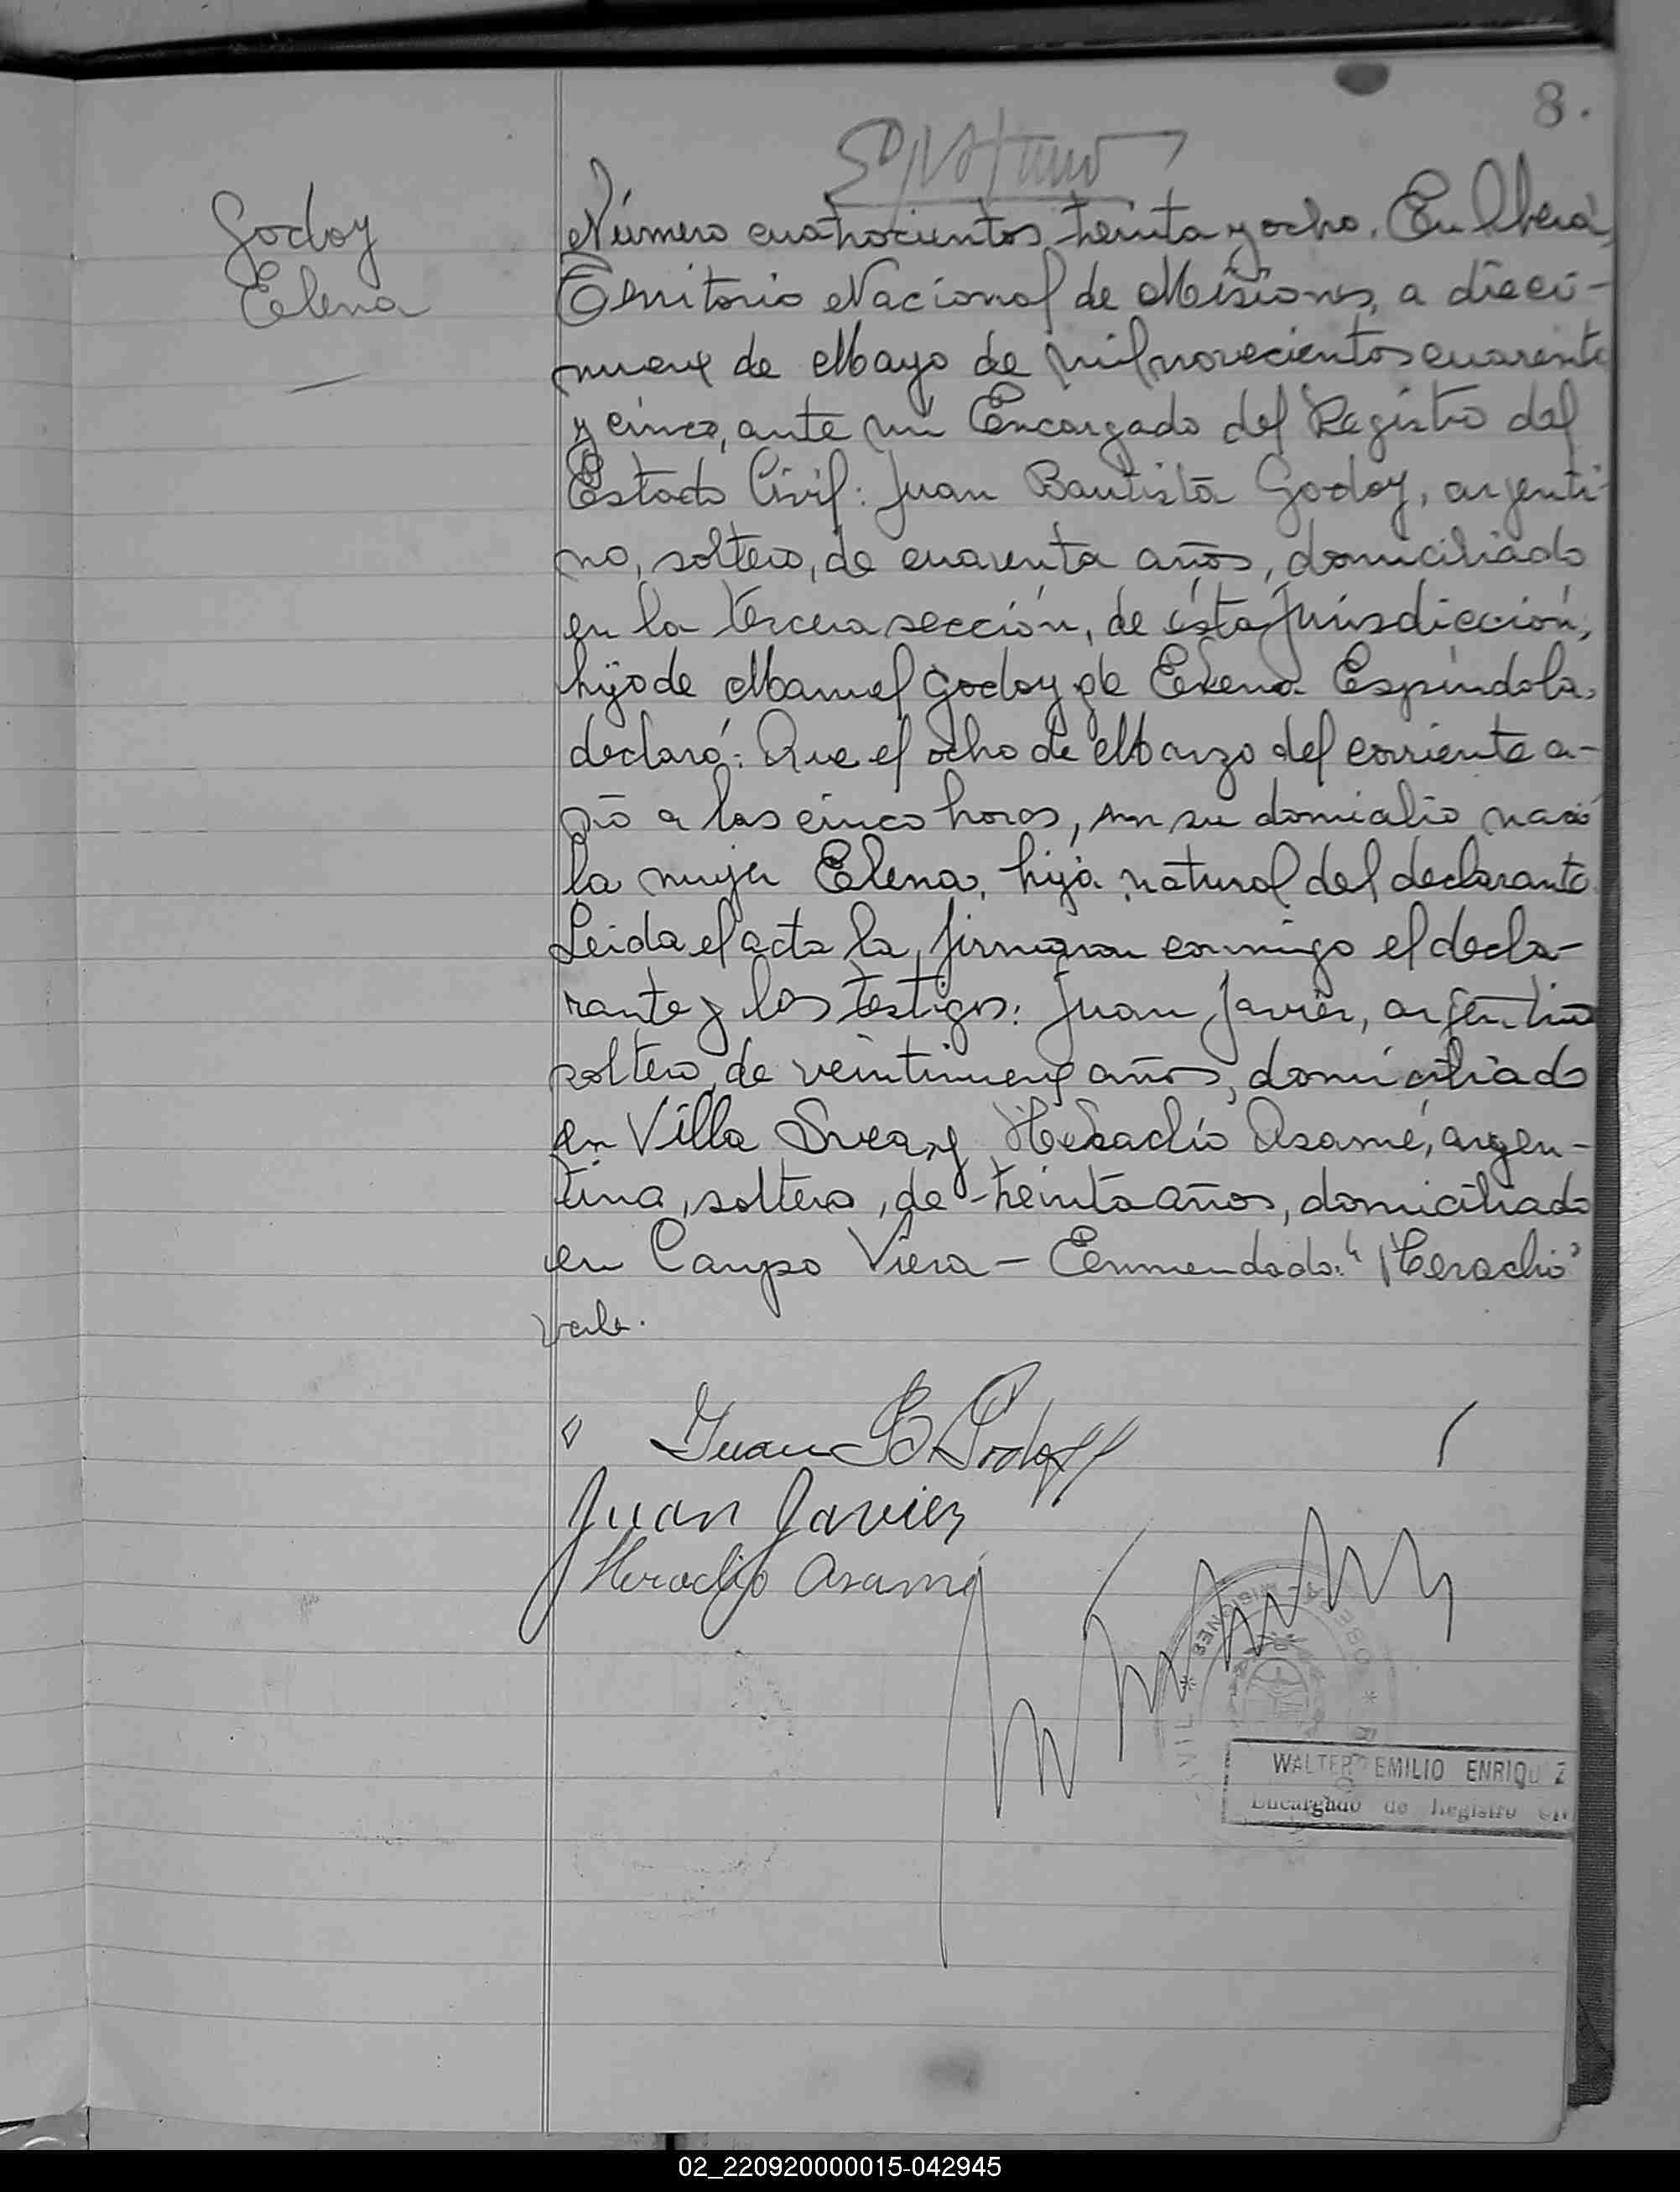 8.
Godoy
Elena
Número cuatrocientos treinta y ocho. En Oberá,
Territorio Nacional de Misiones, a dieci-
nueve de Mayo de mil novecientos cuarenta
y cinco, ante mí Encargado del Registro del
Estado Civil: Juan Bautista Godoy, argenti-
no, soltero, de cuarenta años, domiciliado
en la tercera sección, de ésta jurisdicción,
hijo de Manuel Godoy y de Elena Espíndola,
declaró: Que el ocho de Marzo del corriente a-
ño a las cinco horas, en su domicilio nació
la mujer Elena, hija natural del declarante.
Leida el acta la firmaron conmigo el decla-
rante y los testigos: Juan Javier, argentino
soltero, de veintinueve años, domiciliado
en Villa Svea y Heraclio Asamé, argen-
tino, soltero, de treinta años, domiciliado
en Campo Viera — Enmendado: "Heraclio"
vale.
Juan B Godoy
Juan Javier
Heraclio Asamé
MISIONES
WALTER EMILIO ENRIQU Z
Encargado de Registro
02_220920000015-042945